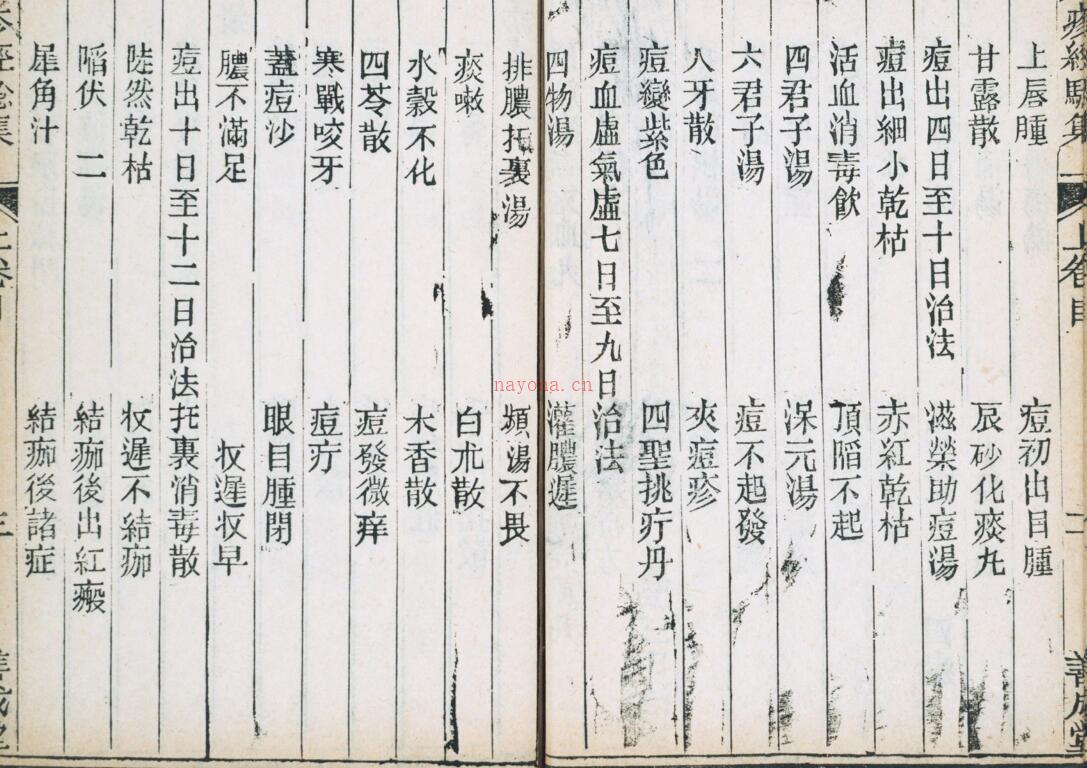 上唇腫 痘初出目腫
甘露散 辰砂化痰丸
痘出四日至十日治法 滋榮助痘湯
痘出細小乾枯 赤紅乾枯
活血消毒飲 頂陷不起
四君子湯 保元湯
六君子湯 痘不起發
八牙散 夾痘疹
痘變紫色 四聖挑疔丹
痘血虛氣虛七日至九日治法
四物湯 灌膿遲
排膿托裏湯 頻湯不畏
痰嗽 白朮散
水穀不化 木香散
四苓散 痘發微痒
寒戰咬牙 痘疔
蓋痘沙 眼目腫閉
膿不滿足 收遲收早
痘出十日至十二日治法 托裏消毒散
陡然乾枯 收遲不結痂
陷伏二 結痂後出紅瘢
犀角汁 結痂後諸症
上卷目 二
善成堂
三
nayona.cn